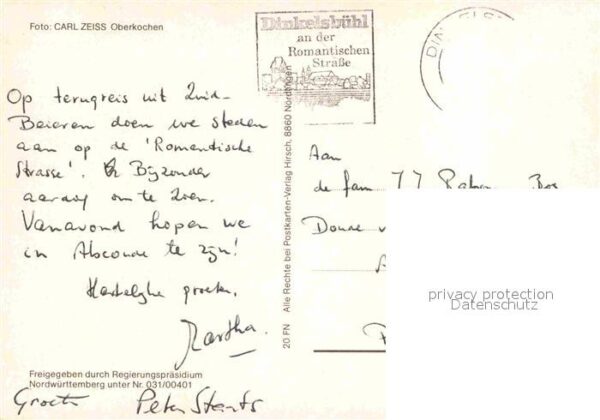 Foto: CARL ZEISS Oberkochen
Dinkelsbühl
an der
Romantischen
Straße
Op terugreis uit Zuid-
Beieren doen we steden
aan op de 'Romantische
Strasse'. Bijzonder
aardig om te zien.
Vanavond hopen we
in Abcoude te zijn!
Hartelijke groeten,
Martha.
Freigegeben durch Regierungspräsidium
Nordwürttemberg unter Nr. 031/00401
Groeten Peter
20 FN Alle Rechte bei Postkarten-Verlag Hirsch, 8860 Nördlingen
Aan
de fam
privacy protection
Datenschutz